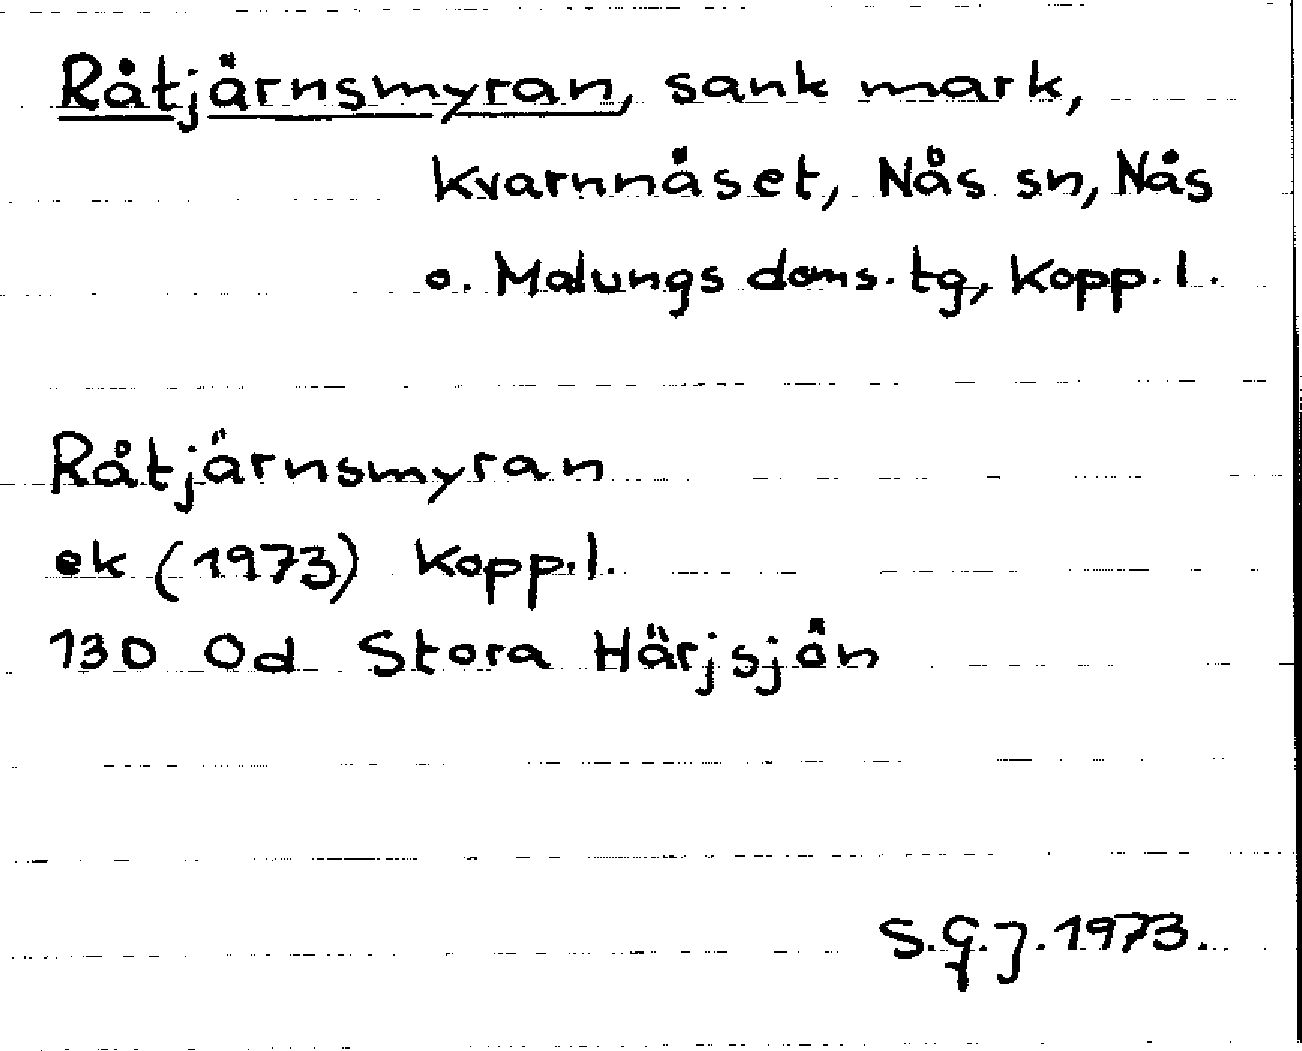 Råtjärnsmyran, sank mark,
Kvarnnåset, Nås sn, Nås
o. Malungs doms. tg, Kopp. l.
Råtjärnsmyran
ek (1973) Kopp. l.
130 Od Stora Härjsjön
S.G.J. 1973.